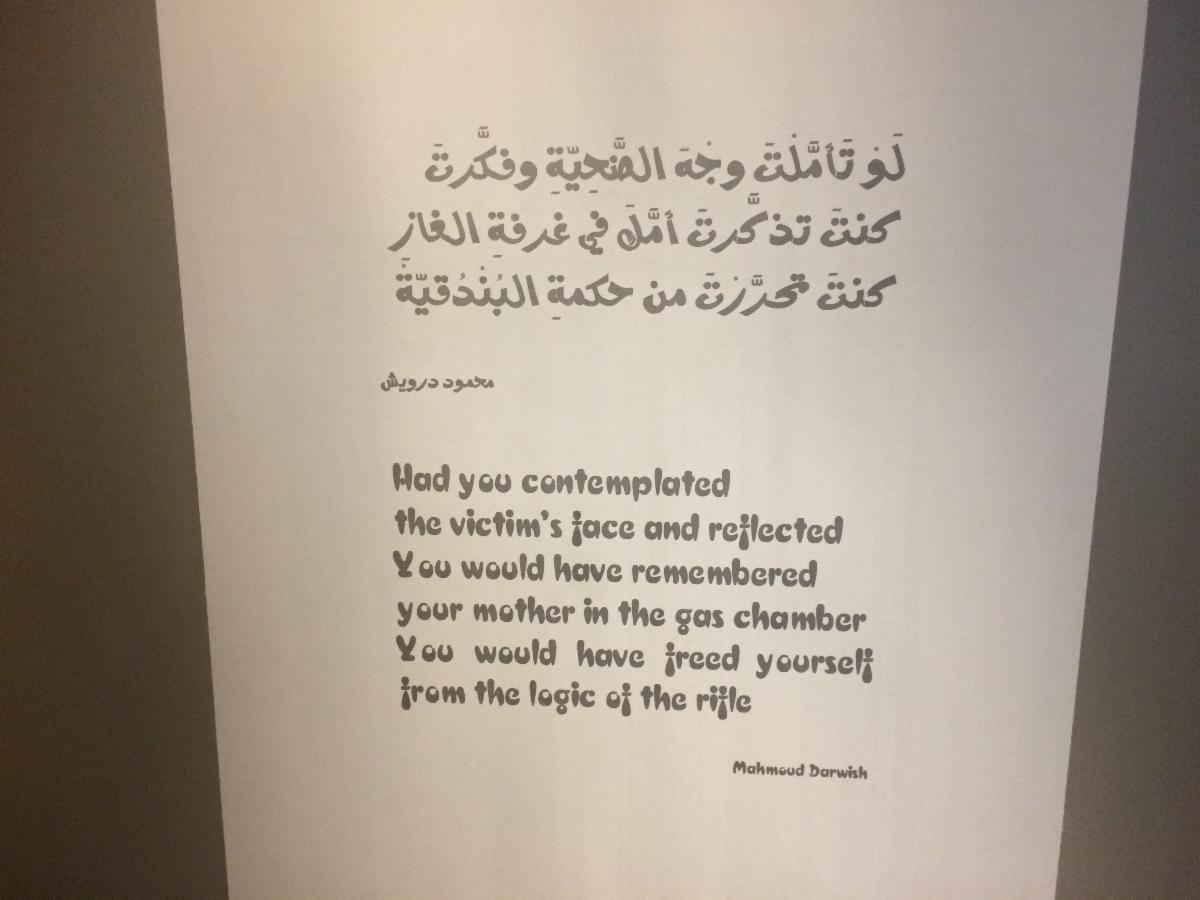 لَوْ تَأَمَّلْتَ وَجْهَ الضَّحِيّةِ وفكَّرتَ
كنتَ تذكَّرتَ أمَّكَ في غرفةِ الغازِ
كنتَ تحرَّرْتَ من حكمةِ البُنْدُقيّةْ
محمود درويش
Had you contemplated
the victim's face and reflected
You would have remembered
your mother in the gas chamber
You would have freed yourself
from the logic of the rifle
Mahmoud Darwish